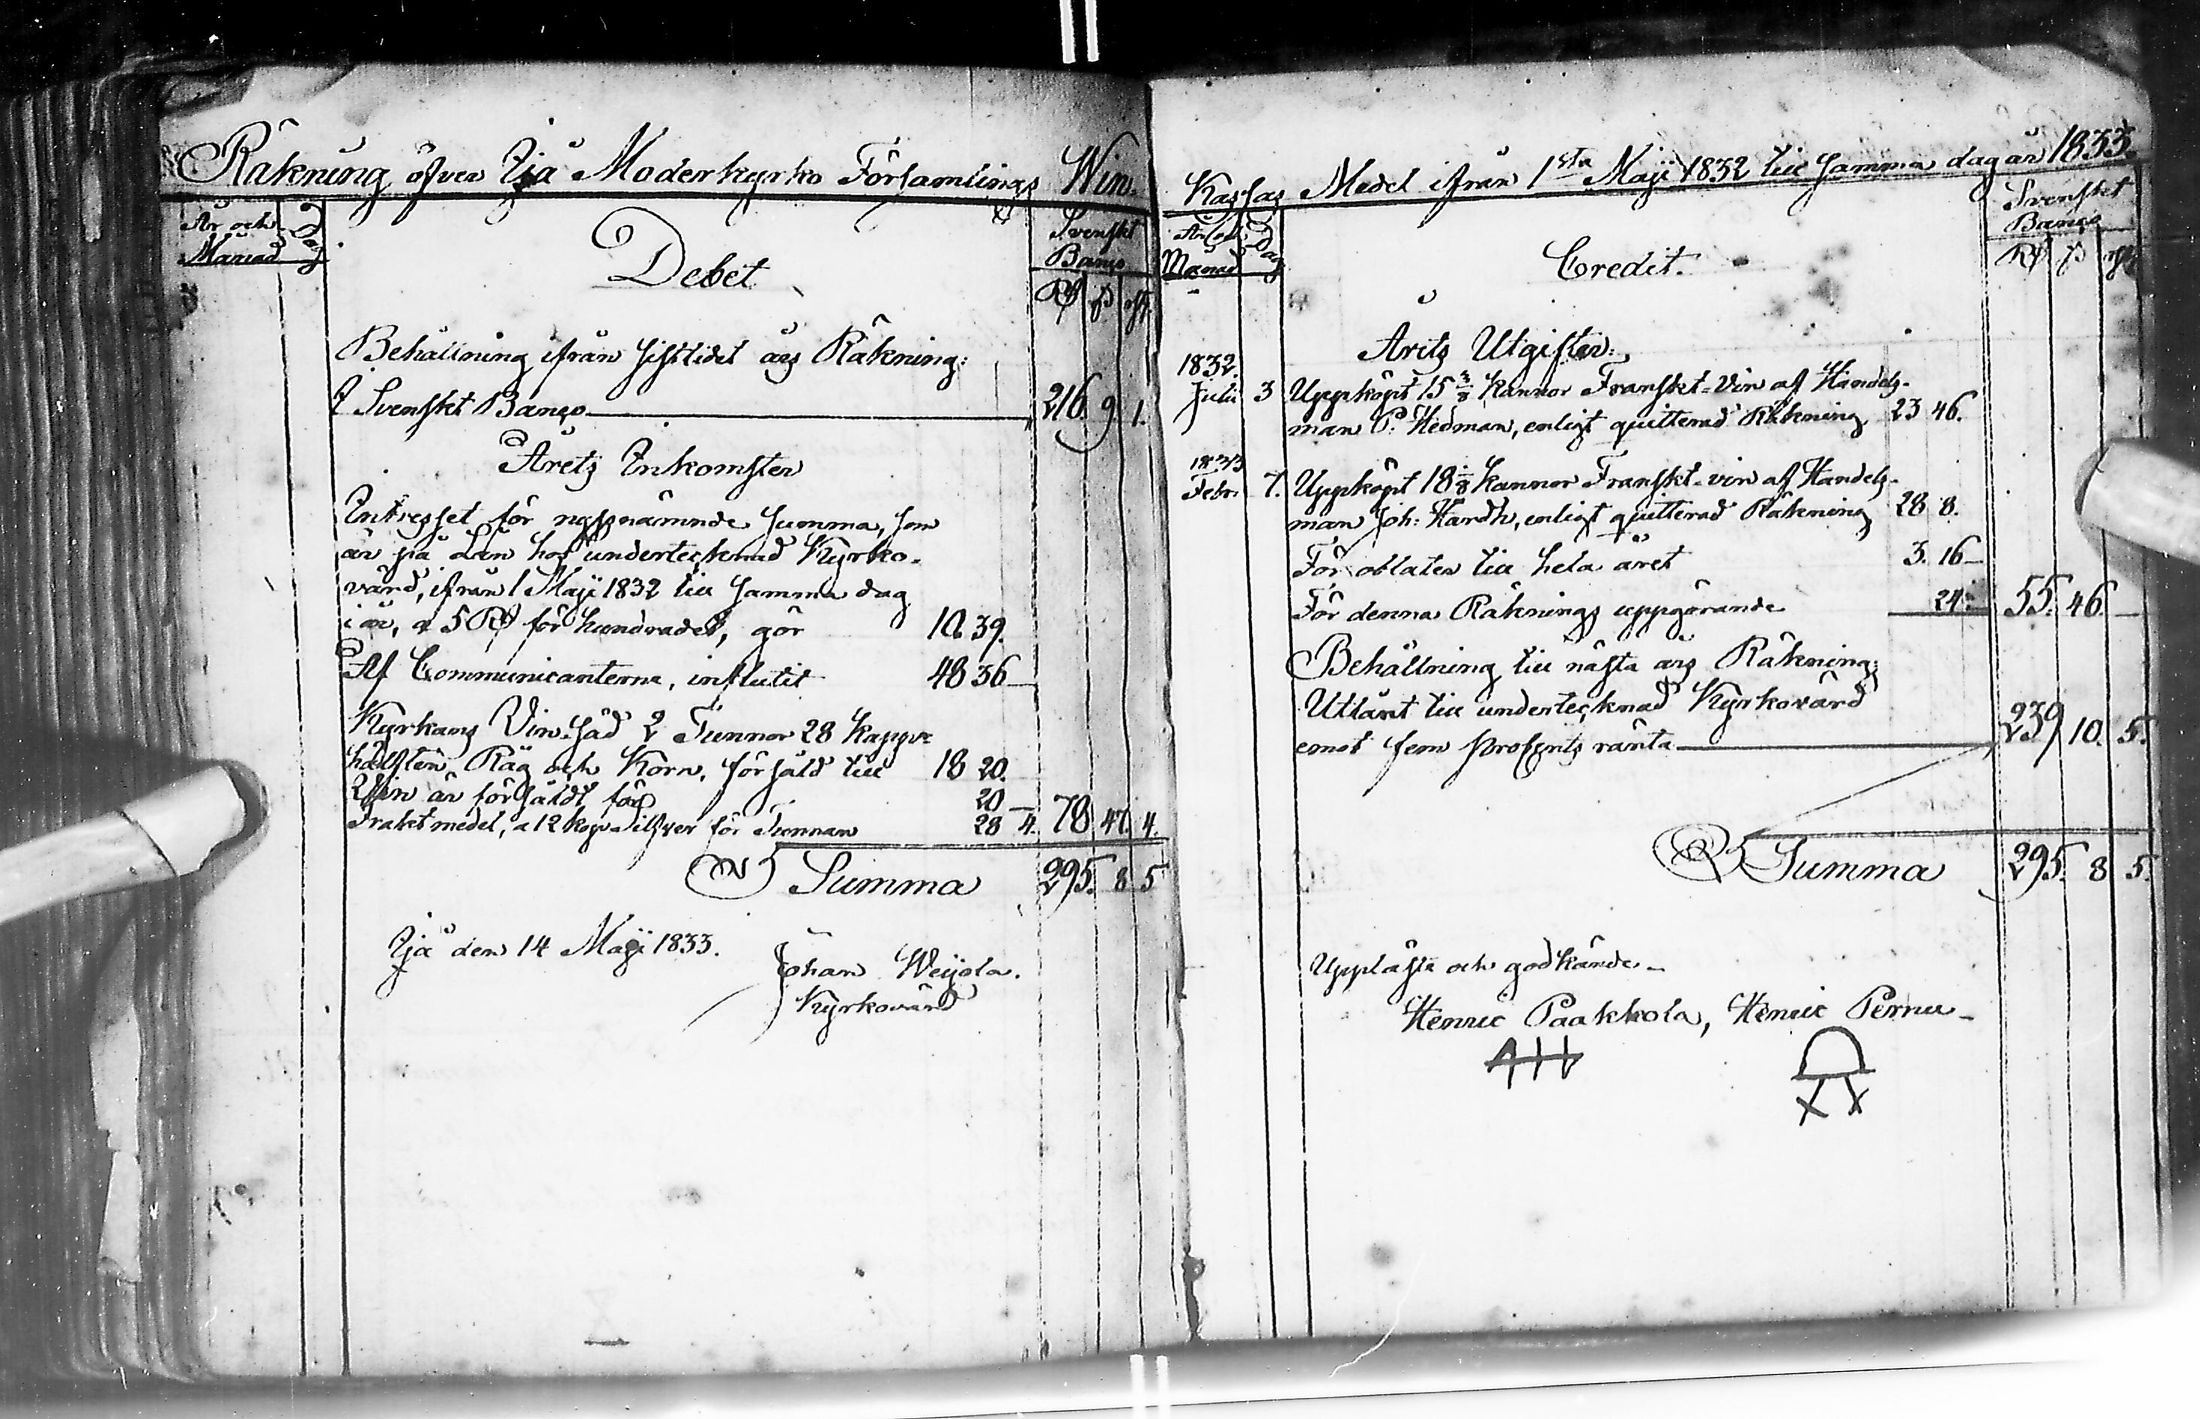 Räkning öfver Ijå Moderkyrko Församlings Win-
År och Månad
Dag
Debet
Svenskt Banco
Rd ß rst.
Behållning ifrån sistlidet års Räkning:
I Svenskt Banco 216. 9 1.
Årets Inkomster
Intresset för nyssnämnde Summa, som
är på Lån hos undertecknad Kyrko-
värd, ifrån 1 Maji 1832 till samma dag
i år, a 5 Rd för hundradet, gör 10 39.
Af Communicanterne, influtit 48 36 —
Kyrkans Vin-Säd 2 Tunnor 28 kappar
hälften Råg och Korn, försåld till 18 20.
Win är försåldt för 20 —
Fraktmedel, a 12 kop. Silfver för Tunnan 28 4. 78 47. 4.
Summa 295. 8 5
Ijå den 14 Maji 1833.
Johan Weijola.
Kyrkovärd
Kassas Medel ifrån 1sta Maji 1832 till samma dag år 1833.
År och Månad
Dag
Credit.
Svenskt Banco
Rd ß rst
Årets Utgifter:
1832.
Julii 3 Uppköpt 15 3/8 kannor Franskt-Vin af Handels-
man P. Hedman, enligt quitterad Räkning 23 46.
1833
Febr. 7. Uppköpt 18 1/8 kannor Franskt-vin af Handels-
man Joh: Hardh, enligt quitterad Räkning 28 8.
För oblater till hela året 3. 16 —
För denna Räknings uppgörande 24. 55. 46. —
Behållning till nästa års Räkning:
Utlånt till undertecknad Kyrkovärd
emot fem procents ränta 239 10. 5.
Summa 295. 8 5.
Uppläste och godkände —
Henric Paakkola, Henric Pernu —